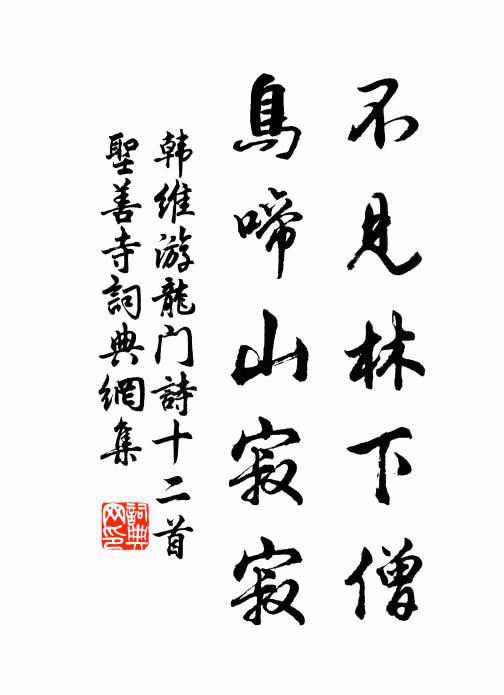 不见林下僧
鳥啼山寂寂
韩维游龍门詩十二首
聖善寺詞典網集
詞典
网印